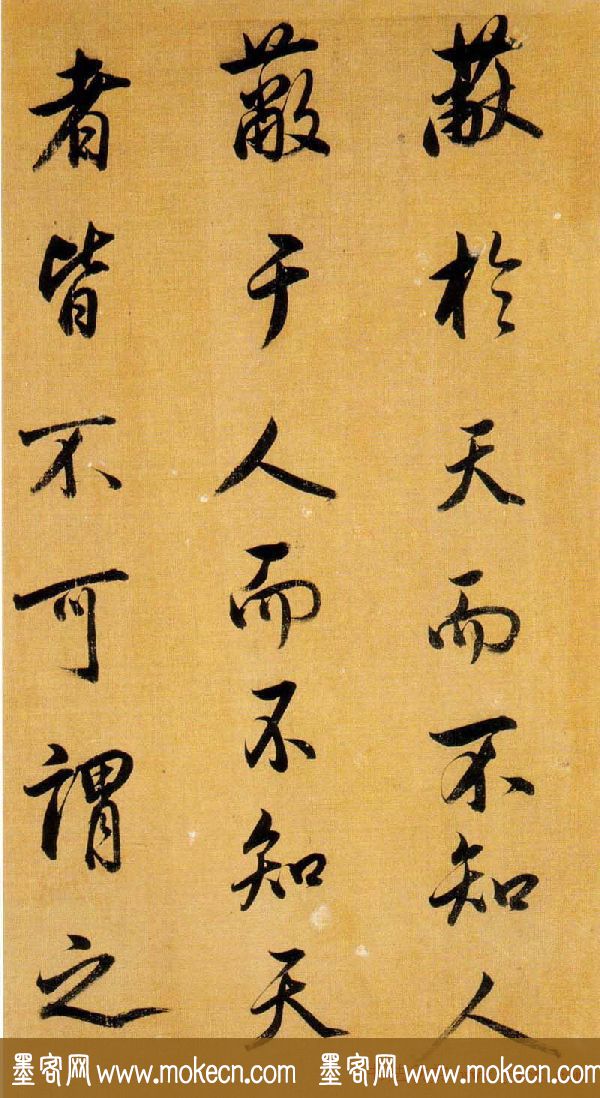 蔽於天而不知人
蔽于人而不知天
者皆不可謂之
墨客网 www.mokecn.com 墨客网 www.mokecn.com